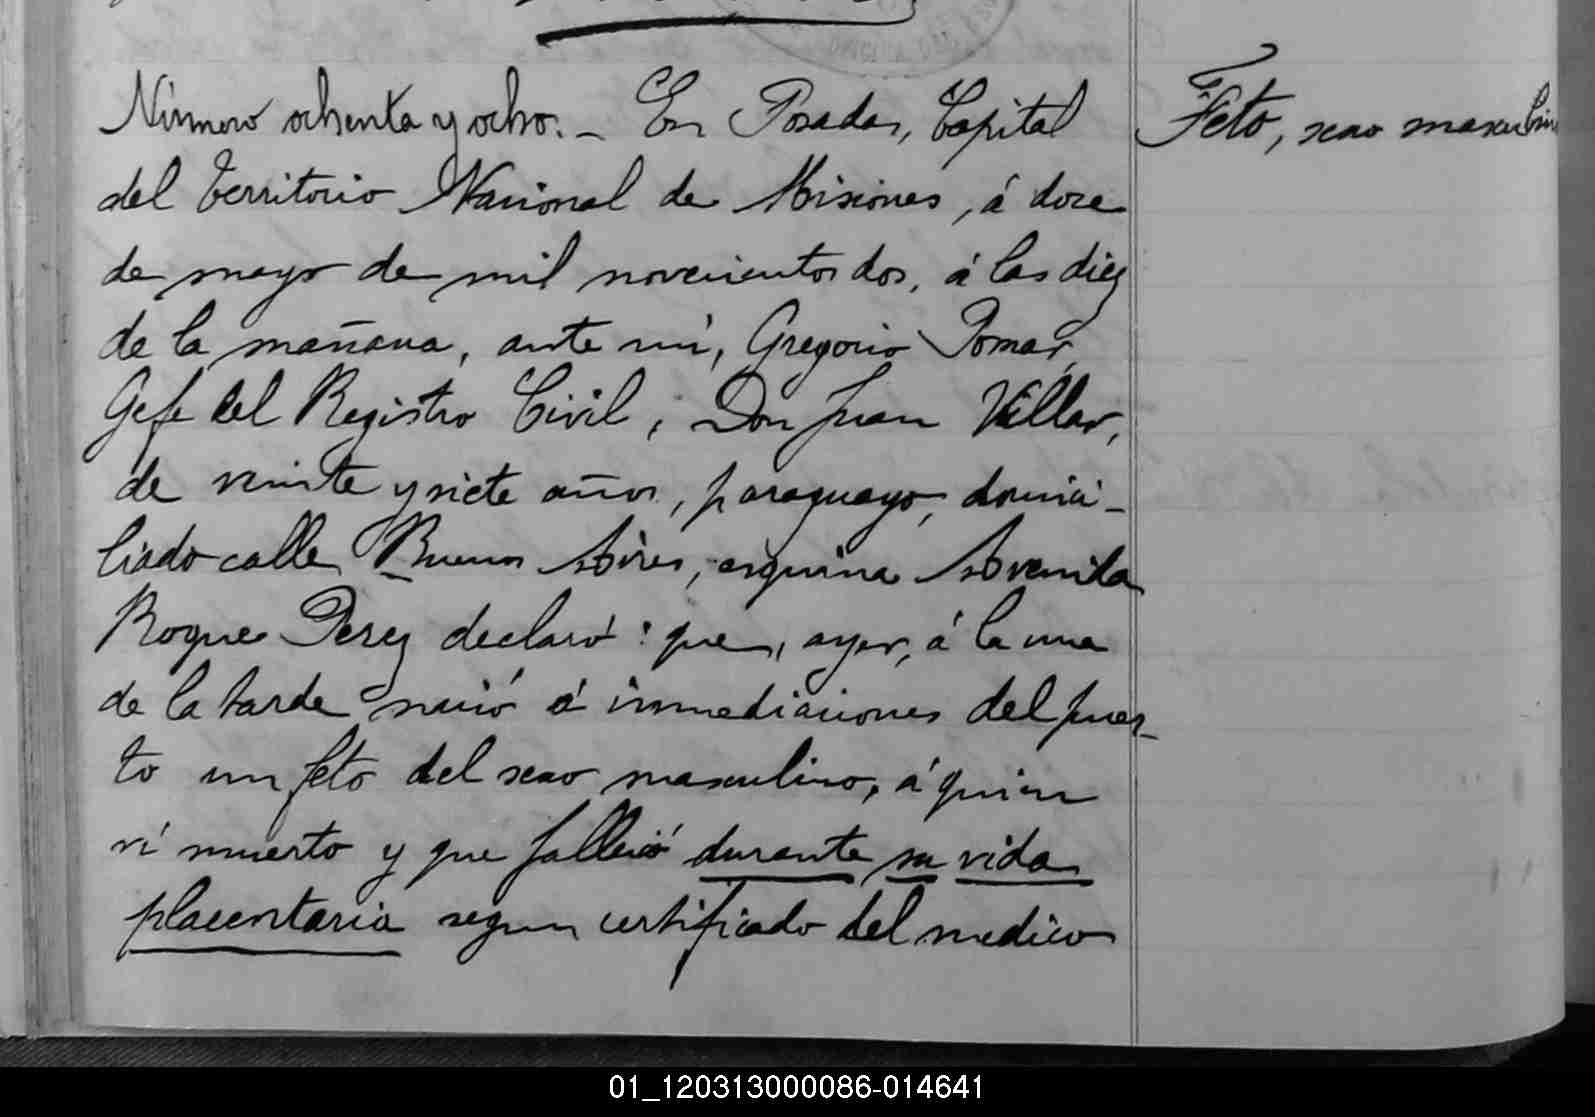 Número ochenta y ocho. - En Posadas, Capital
Feto, sexo masculino
del Territorio Nacional de Misiones, á doce
de mayo de mil novecientos dos, á las diez
de la mañana, ante mí, Gregorio Pomar,
Gefe del Registro Civil, Don Juan Villar,
de veinte y siete años, paraguayo, domici-
liado calle Buenos Aires, esquina Avenida
Roque Perez declaró: que, ayer, á la una
de la tarde nació á inmediaciones del puer-
to un feto del sexo masculino, á quien
ví muerto y que falleció durante su vida
placentaria segun certificado del medico
01_120313000086-014641